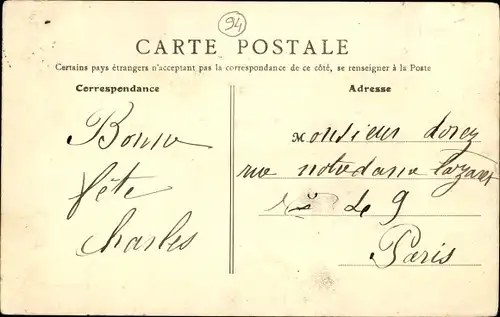 94
CARTE POSTALE
Certains pays étrangers n'acceptant pas la correspondance de ce côté, se renseigner à la Poste
Correspondance
Adresse
Bonne
fête
Charles
Monsieur dorez
rue notredame
Le 9
Paris